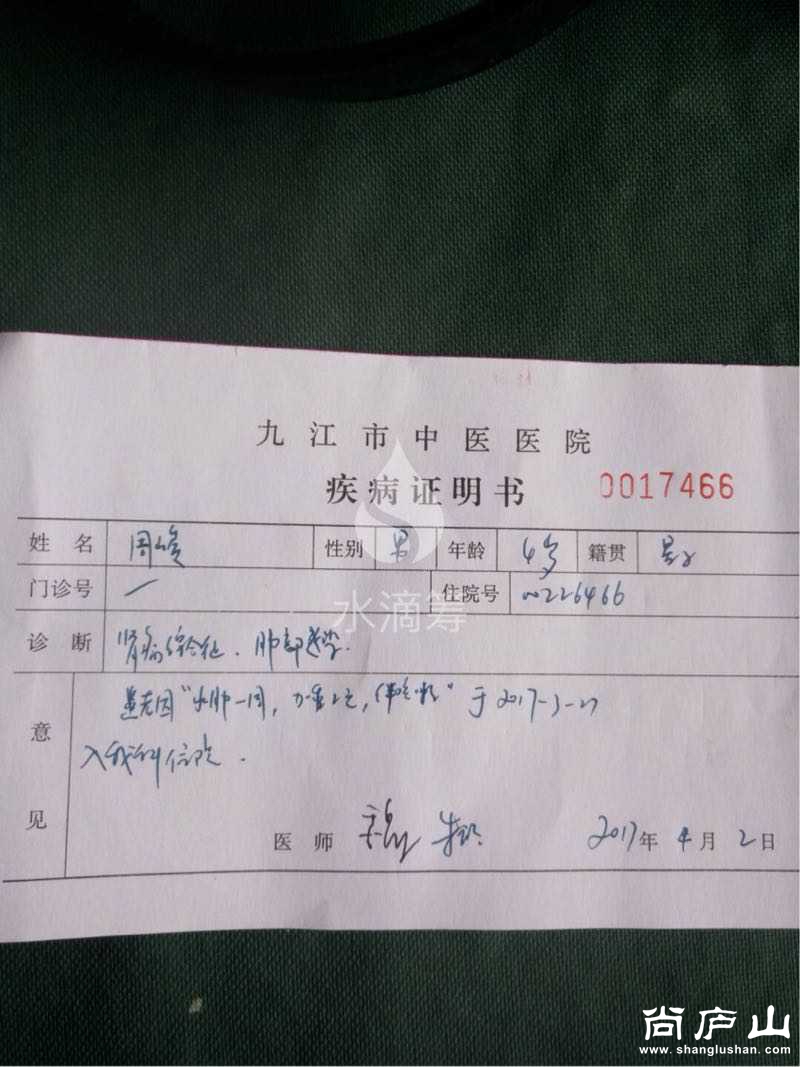 九江市中医医院
疾病证明书 0017466
姓名 周 性别 男 年龄 4岁 籍贯
门诊号 一 住院号 00226466
诊断 肾病综合征、肺部感染.
意见 患者因"水肿一周, 加重2天, 伴咳嗽" 于2017-3-27
入我科住院.
医师 2017年4月2日
水滴筹
尚庐山
www.shanglushan.com